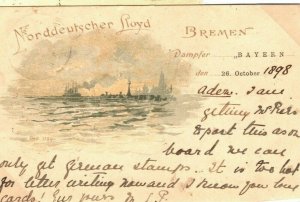 Norddeutscher Lloyd
BREMEN
Dampfer „BAYERN
den 26. October 1898
Aden. I am
getting
& post this as on
board we can
only get German stamps. It is too hot
for letter writing now and I know you love
cards!